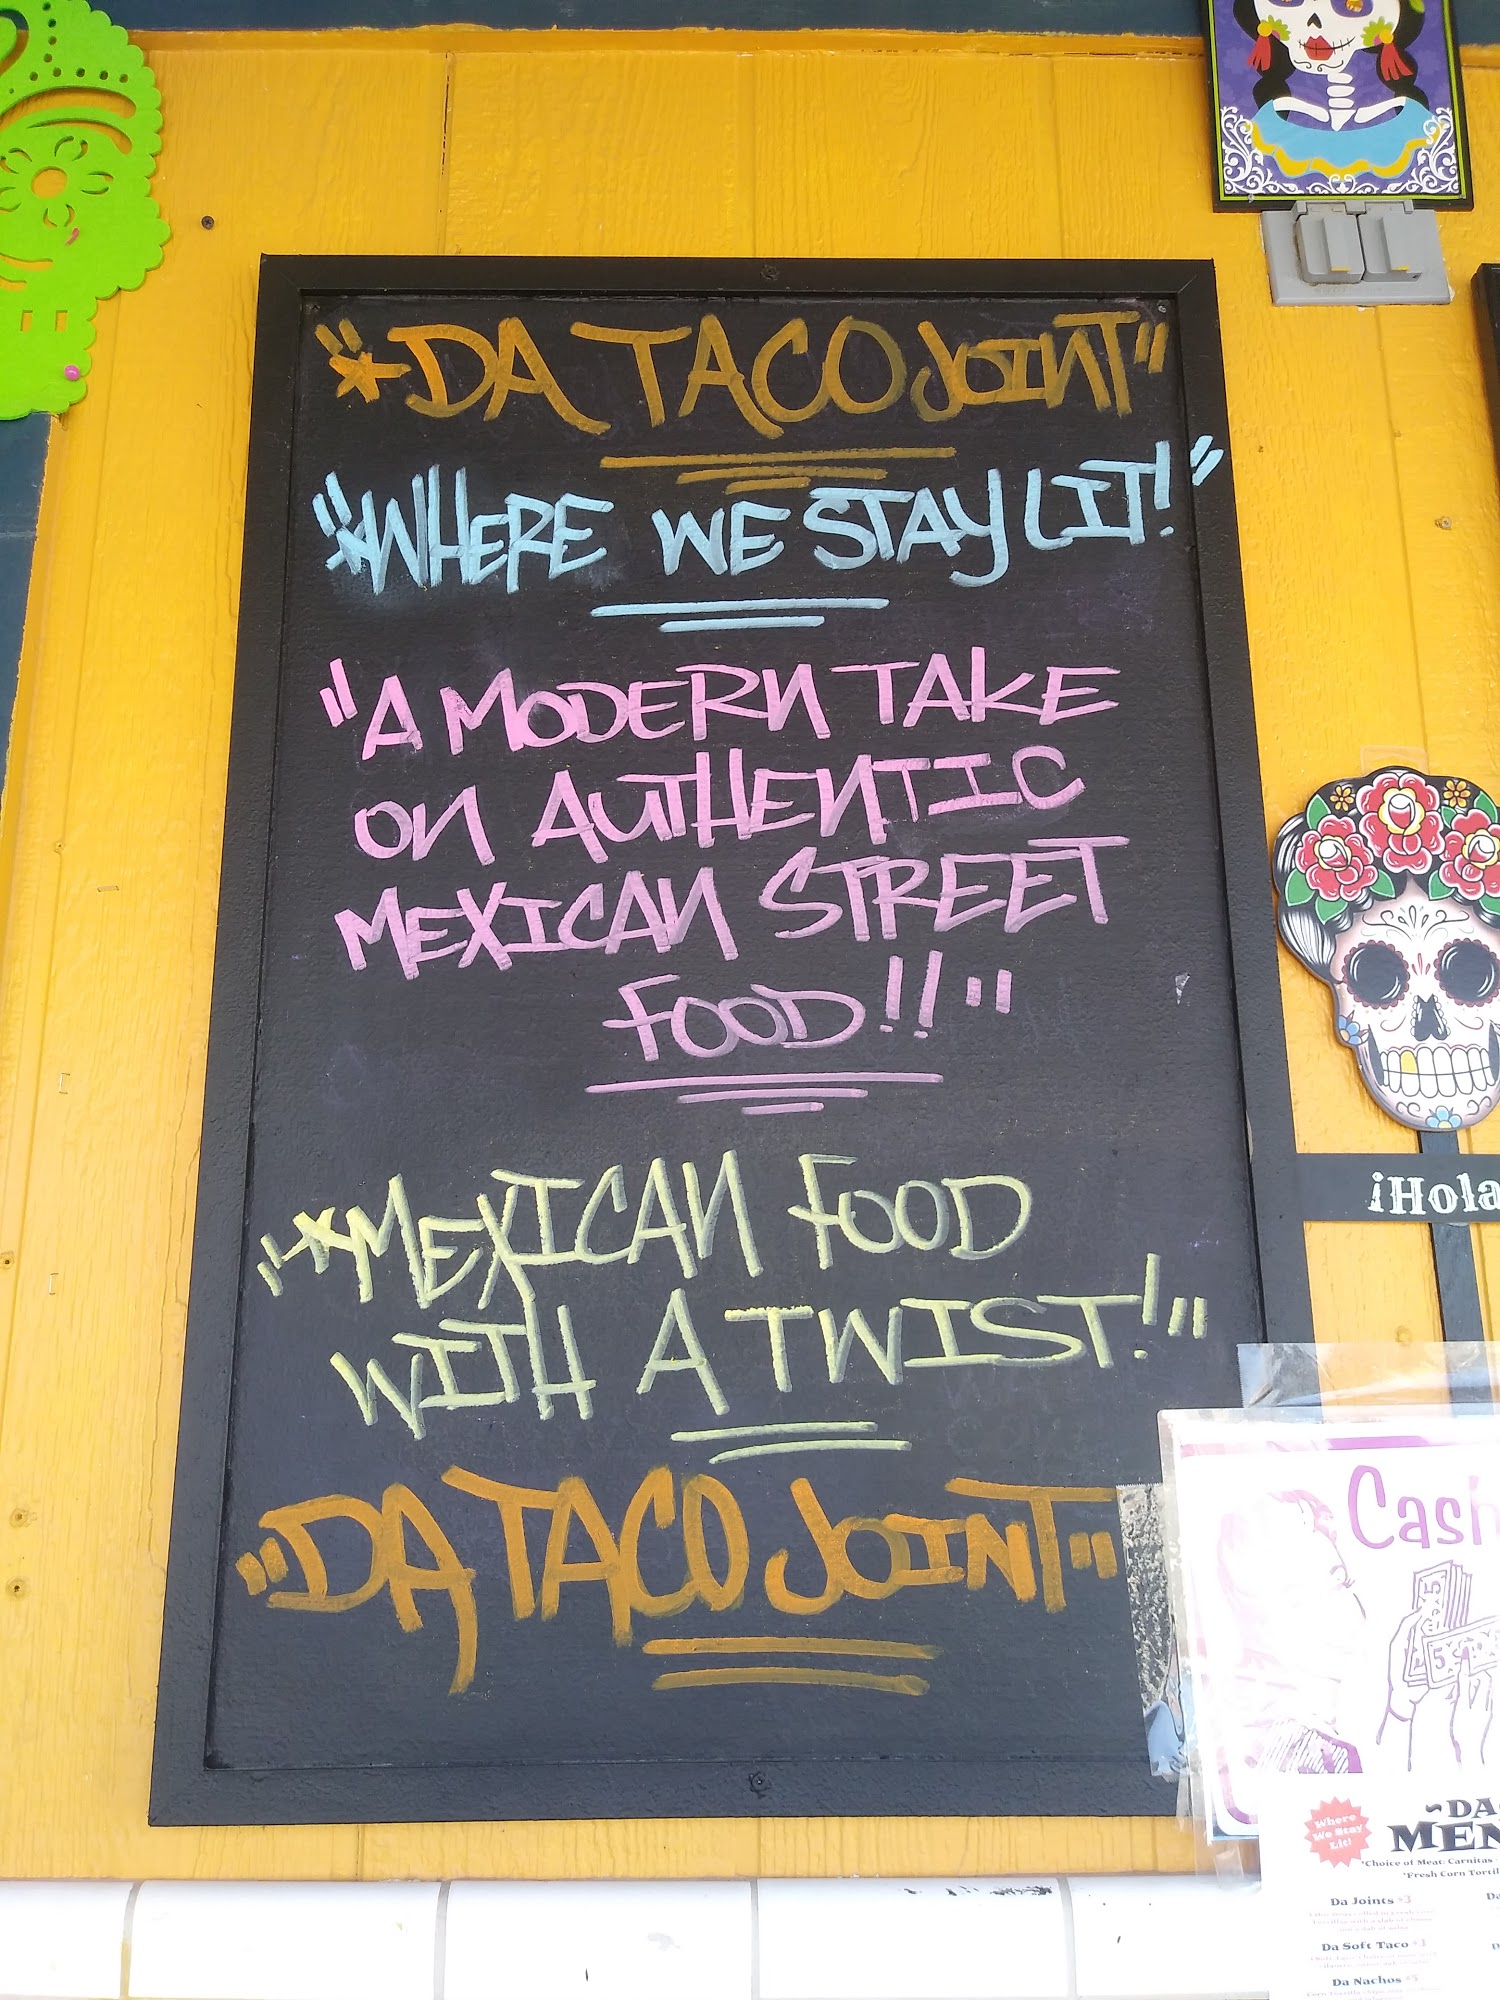 "*DA TACO JOINT"
"*WHERE WE STAY LIT!"
"A MODERN TAKE
ON AUTHENTIC
MEXICAN STREET
FOOD!!"
"*MEXICAN FOOD
WITH A TWIST!"
"DA TACO JOINT"
¡Hola
Cash
~DA
MEN
Where
We Stay
Lit!
*Choice of Meat: Carnitas
*Fresh Corn Tortil
Da Joints $3
Da Soft Taco $3
Da Nachos $5